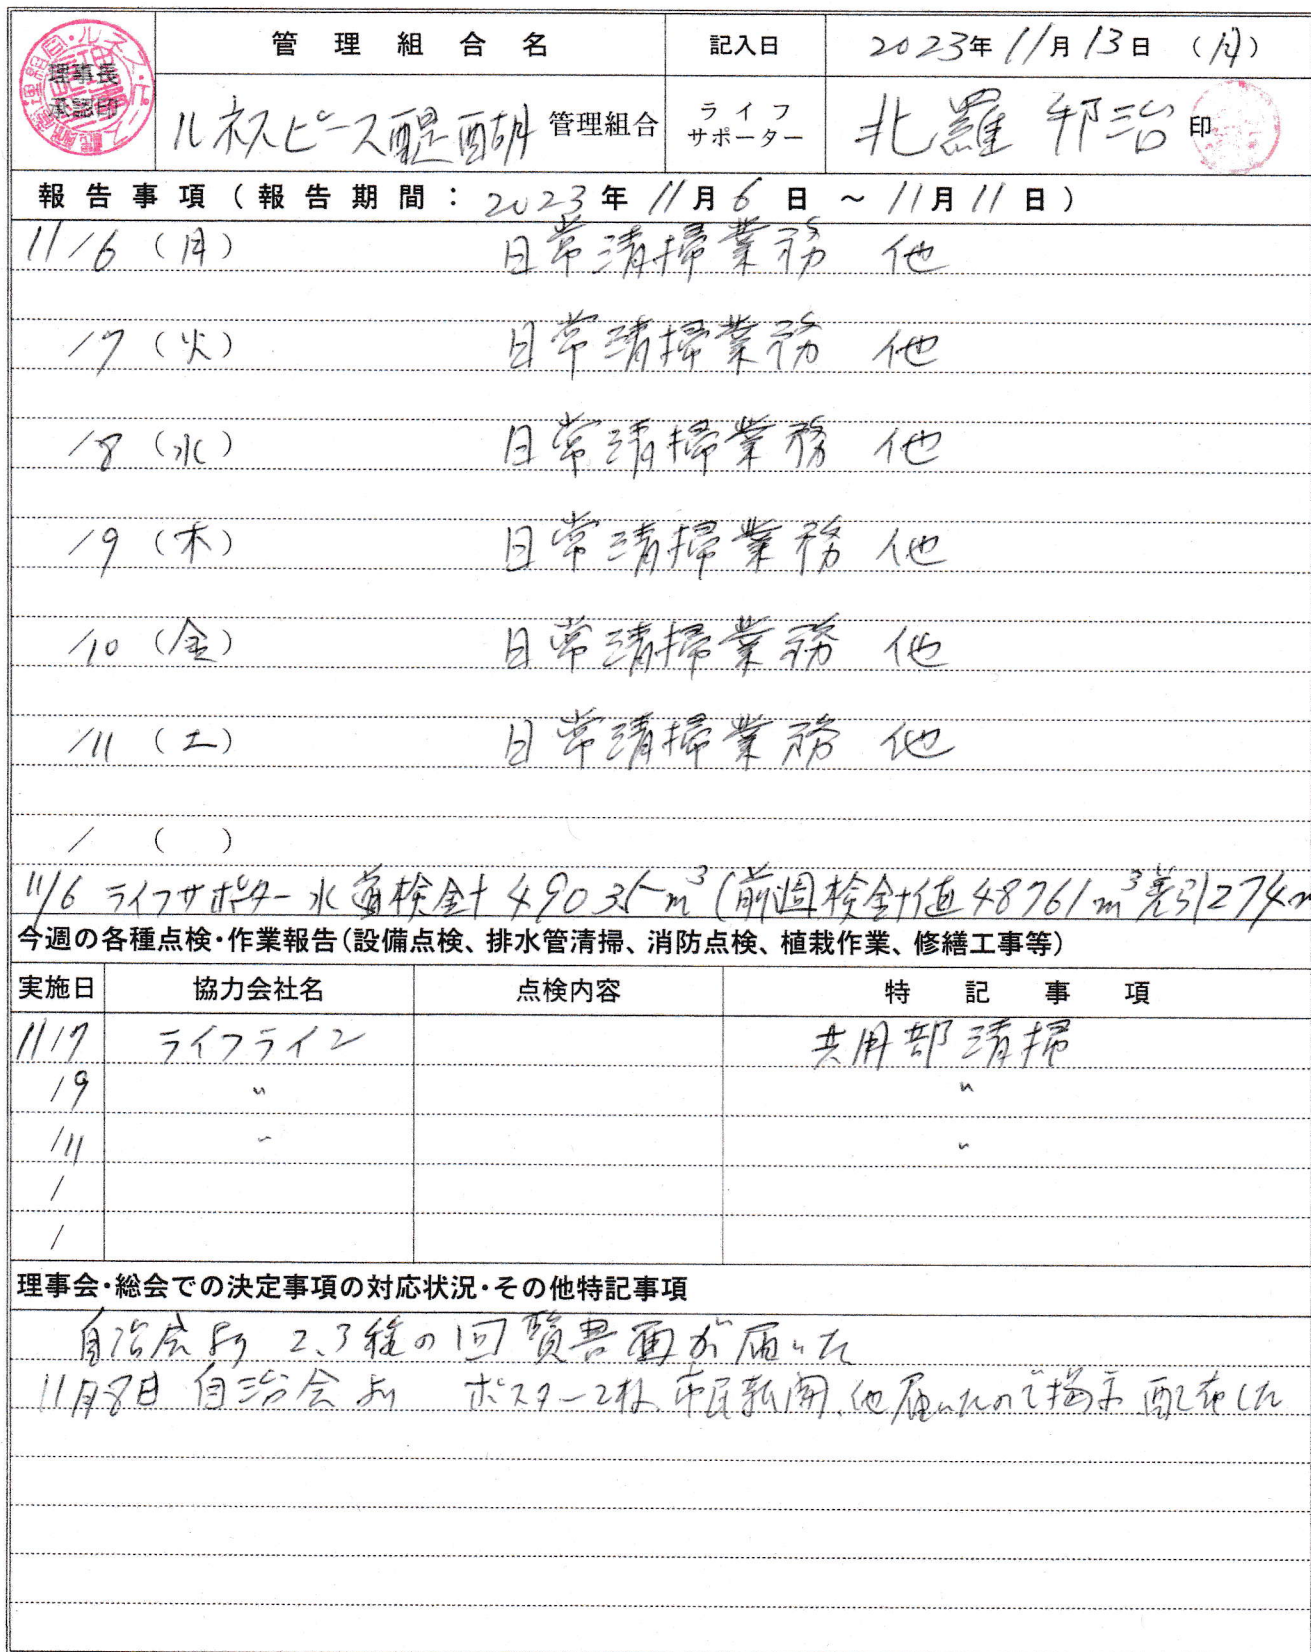 理事長
承認印
管理組合名
記入日
2023年11月13日（月）
ルネスピース醍醐 管理組合
ライフ
サポーター
北羅 邦治 印
報告事項（報告期間：2023年11月6日～11月11日）
11/6（月） 日常清掃業務 他
/7（火） 日常清掃業務 他
/8（水） 日常清掃業務 他
/9（木） 日常清掃業務 他
/10（金） 日常清掃業務 他
/11（土） 日常清掃業務 他
/ （ ）
11/6 ライフサポーター水道検針 49035m³（前週検針値48761m³差引274m
今週の各種点検・作業報告（設備点検、排水管清掃、消防点検、植栽作業、修繕工事等）
実施日 協力会社名 点検内容 特記事項
11/7 ライフライン 共用部清掃
/9 〃 〃
/11 〃 〃
/
/
理事会・総会での決定事項の対応状況・その他特記事項
自治会より 2、3種の回覧書面が届いた
11月8日 自治会より ポスター2枚、市民新聞、他届いたので掲示配布した